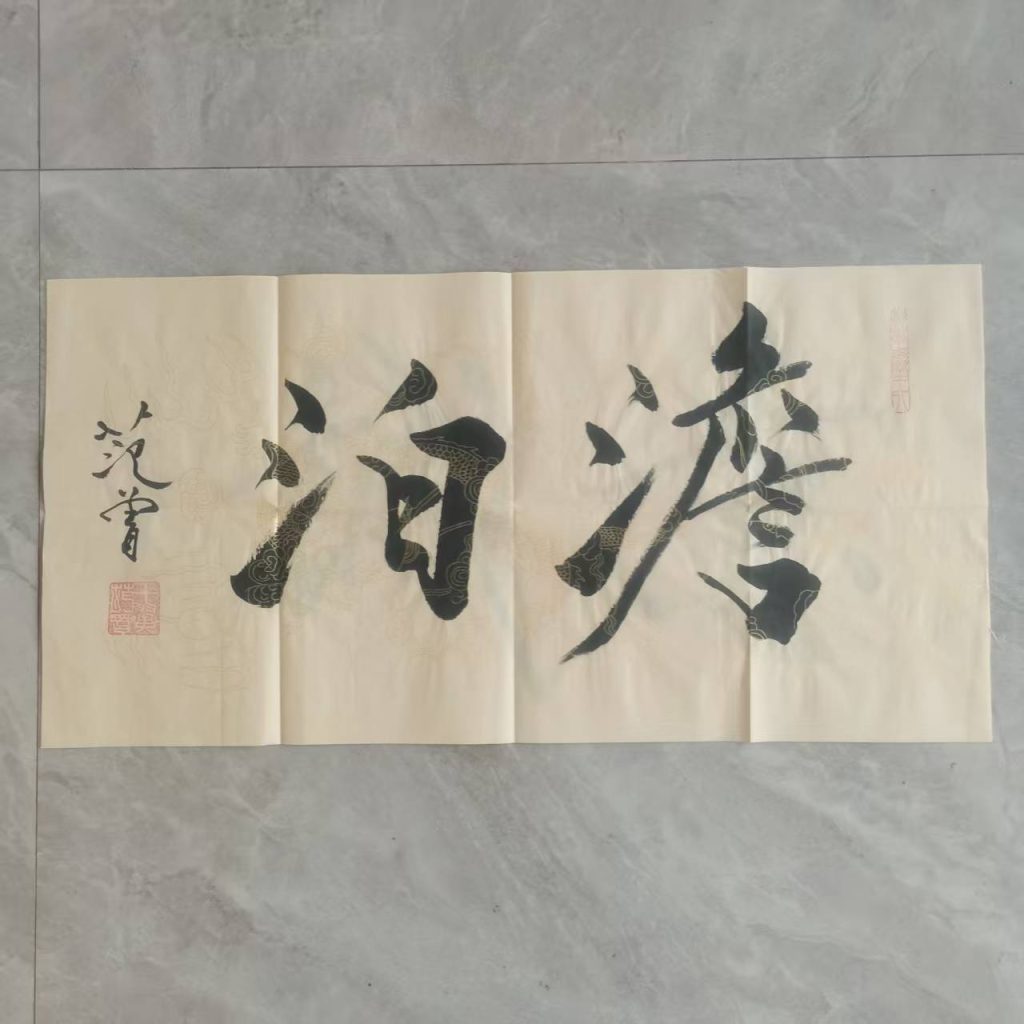 澹泊
范曾